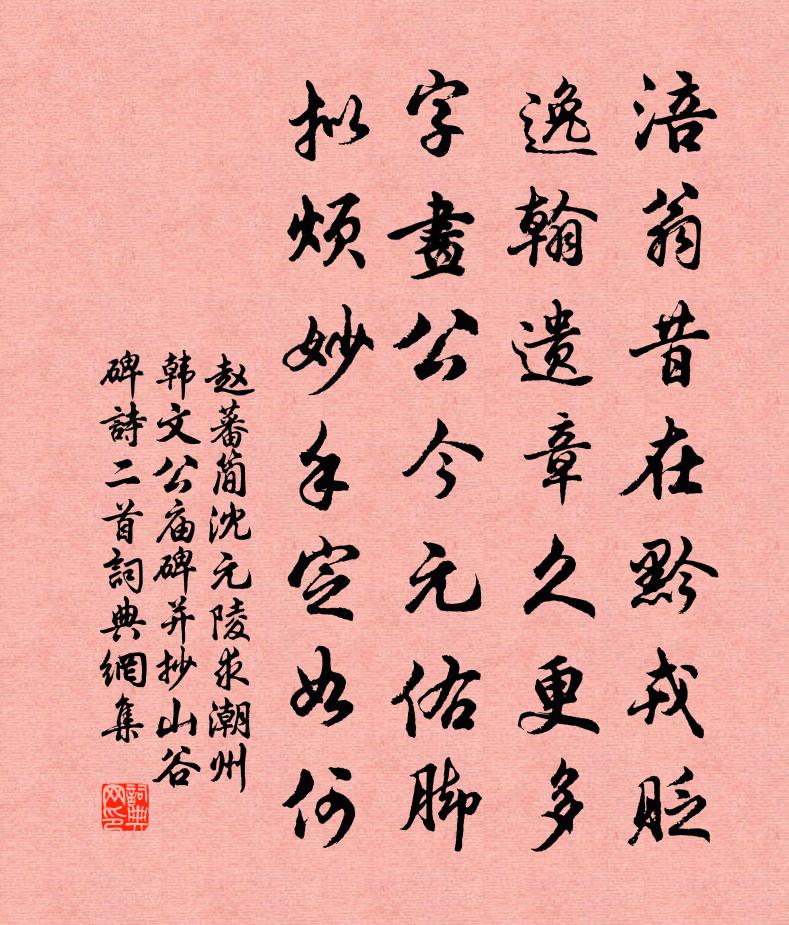 涪翁昔在黔戎贬
逸翰遗章久更多
字畫公今元佑脚
拟烦妙手定如何
赵蕃简沈元陵求潮州
韩文公庙碑并抄山谷
碑詩二首詞典網集
詞典网印